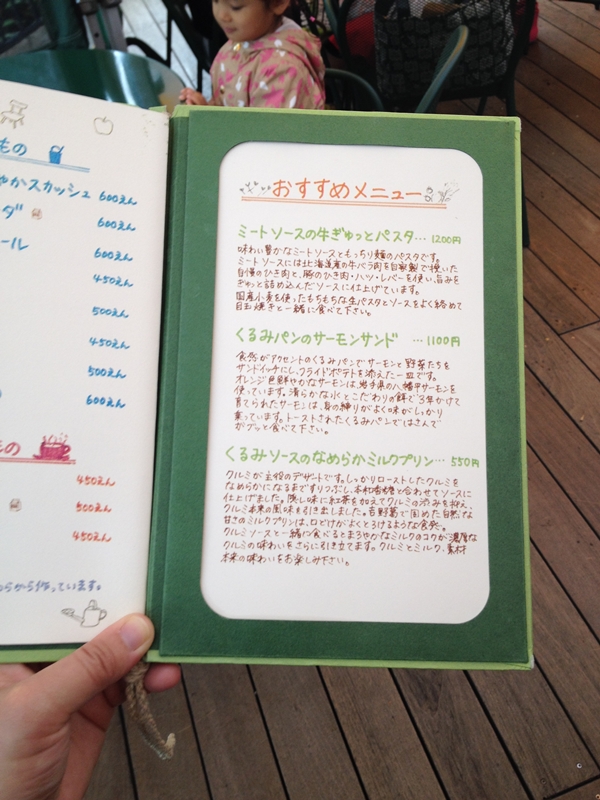 もの
やかスカッシュ 600えん
ダ 600えん
ール 600えん
450えん
500えん
450えん
500えん
600えん
もの
450えん
500えん
450えん
らから作っています。
おすすめメニュー
ミートソースの牛ぎゅっとパスタ… 1200円
味わい豊かなミートソースともっちり麺のパスタです。
ミートソースには北海道産の牛バラ肉を自家製で挽いた
自慢のひき肉と、豚のひき肉・ハツ・レバーを使い、旨みを
ぎゅっと詰め込んだソースに仕上げています。
国産小麦を使ったもちもちな生パスタとソースをよく絡めて
目玉焼きと一緒に食べて下さい。
くるみパンのサーモンサンド …1100円
食感がアクセントのくるみパンでサーモンと野菜たちを
サンドイッチにし、フライドポテトを添えた一皿です。
オレンジ色鮮やかなサーモンは、岩手県の八幡平サーモンを
使っています。清らかな水とこだわりの餌で3年かけて
育てられたサーモンは、身の締りがよく味がしっかり
乗っています。トーストされたくるみパンではさんで
ガブッと食べて下さい。
くるみソースのなめらかミルクプリン… 550円
クルミが主役のデザートです。しっかりローストしたクルミを
なめらかになるまですりつぶし、本和香糖と合わせてソースに
仕上げました。隠し味に紅茶を加えてクルミの渋みを抑え、
クルミ本来の風味を引き出しました。吉野葛で固めた自然な
甘さのミルクプリンは、口どけがよくとろけるような食感。
クルミソースと一緒に食べるとまろやかなミルクのコクが濃厚な
クルミの味わいをさらに引き立てます。クルミとミルク、素材
本来の味わいをお楽しみ下さい。